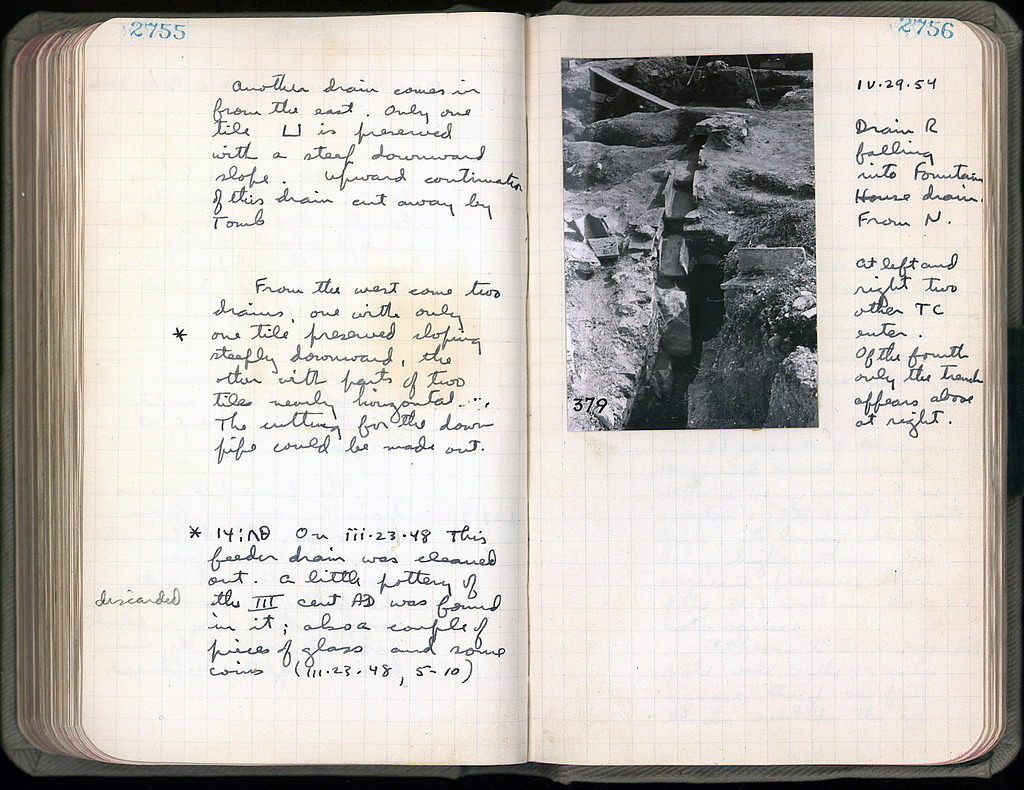 2755
Another drain comes in
from the east. Only one
tile ⊔ is preserved
with a steep downward
slope. Upward continuation
of this drain cut away by
Tomb
From the west come two
drains, one with only
* one tile preserved sloping
steeply downward, the
other with parts of two
tiles nearly horizontal.
The cutting for the down
pipe could be made out.
* 14:ΛΘ On iii.23.48 This
feeder drain was cleaned
out. A little pottery of
discarded the III cent AD was found
in it; also a couple of
pieces of glass and some
coins (III.23.48, 5-10)
2756
379
IV.29.54
Drain R
falling
into Fountain
House drain.
From N.
At left and
right two
other TC
enter.
Of the fourth
only the trench
appears above
at right.